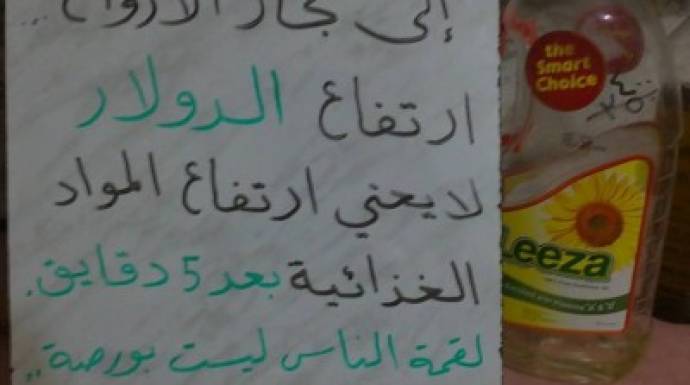 إلى تجار الأزواج ...
ارتفاع الدولار
لا يعني ارتفاع المواد
الغذائية بعد 5 دقايق.
لقمة الناس ليست بورصة ..
the
Smart
Choice
Leeza